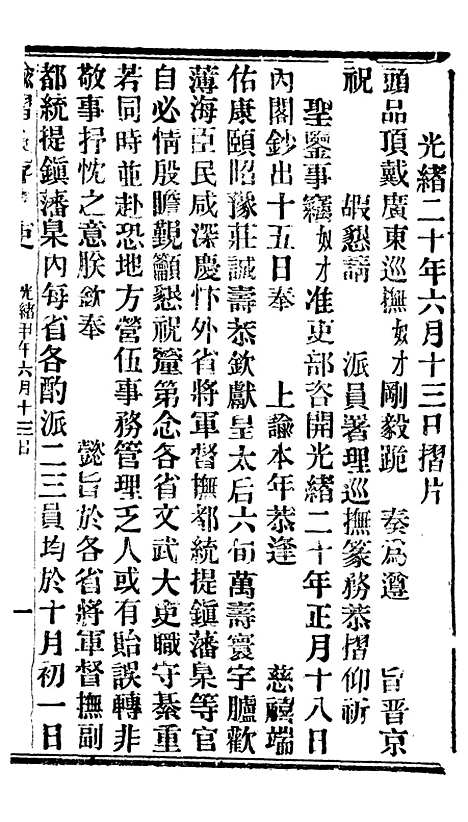 光緒二十年六月十三日摺片
頭品頂戴廣東巡撫奴才剛毅跪 奏爲遵 旨晋京
祝 嘏懇請 派員署理巡撫篆務恭摺仰祈
聖鑒事竊奴才准吏部咨開光緒二十年正月十八日
內閣鈔出十五日奉 上諭本年恭逢 慈禧端
佑康頤昭豫莊誠壽恭欽獻皇太后六旬萬壽寰宇臚歡
薄海臣民咸深慶忭外省將軍督撫都統提鎮藩臬等官
自必情殷瞻覲籲懇祝釐第念各省文武大吏職守綦重
若同時並赴恐地方營伍事務管理乏人或有貽誤轉非
敬事抒忱之意朕欽奉 懿旨於各省將軍督撫副
都統提鎮藩臬內每省各酌派二三員均於十月初一日
光緒甲午六月十三日
一